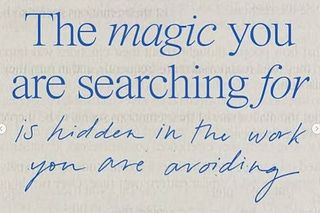 The magic you
are searching for
is hidden in the work
you are avoiding